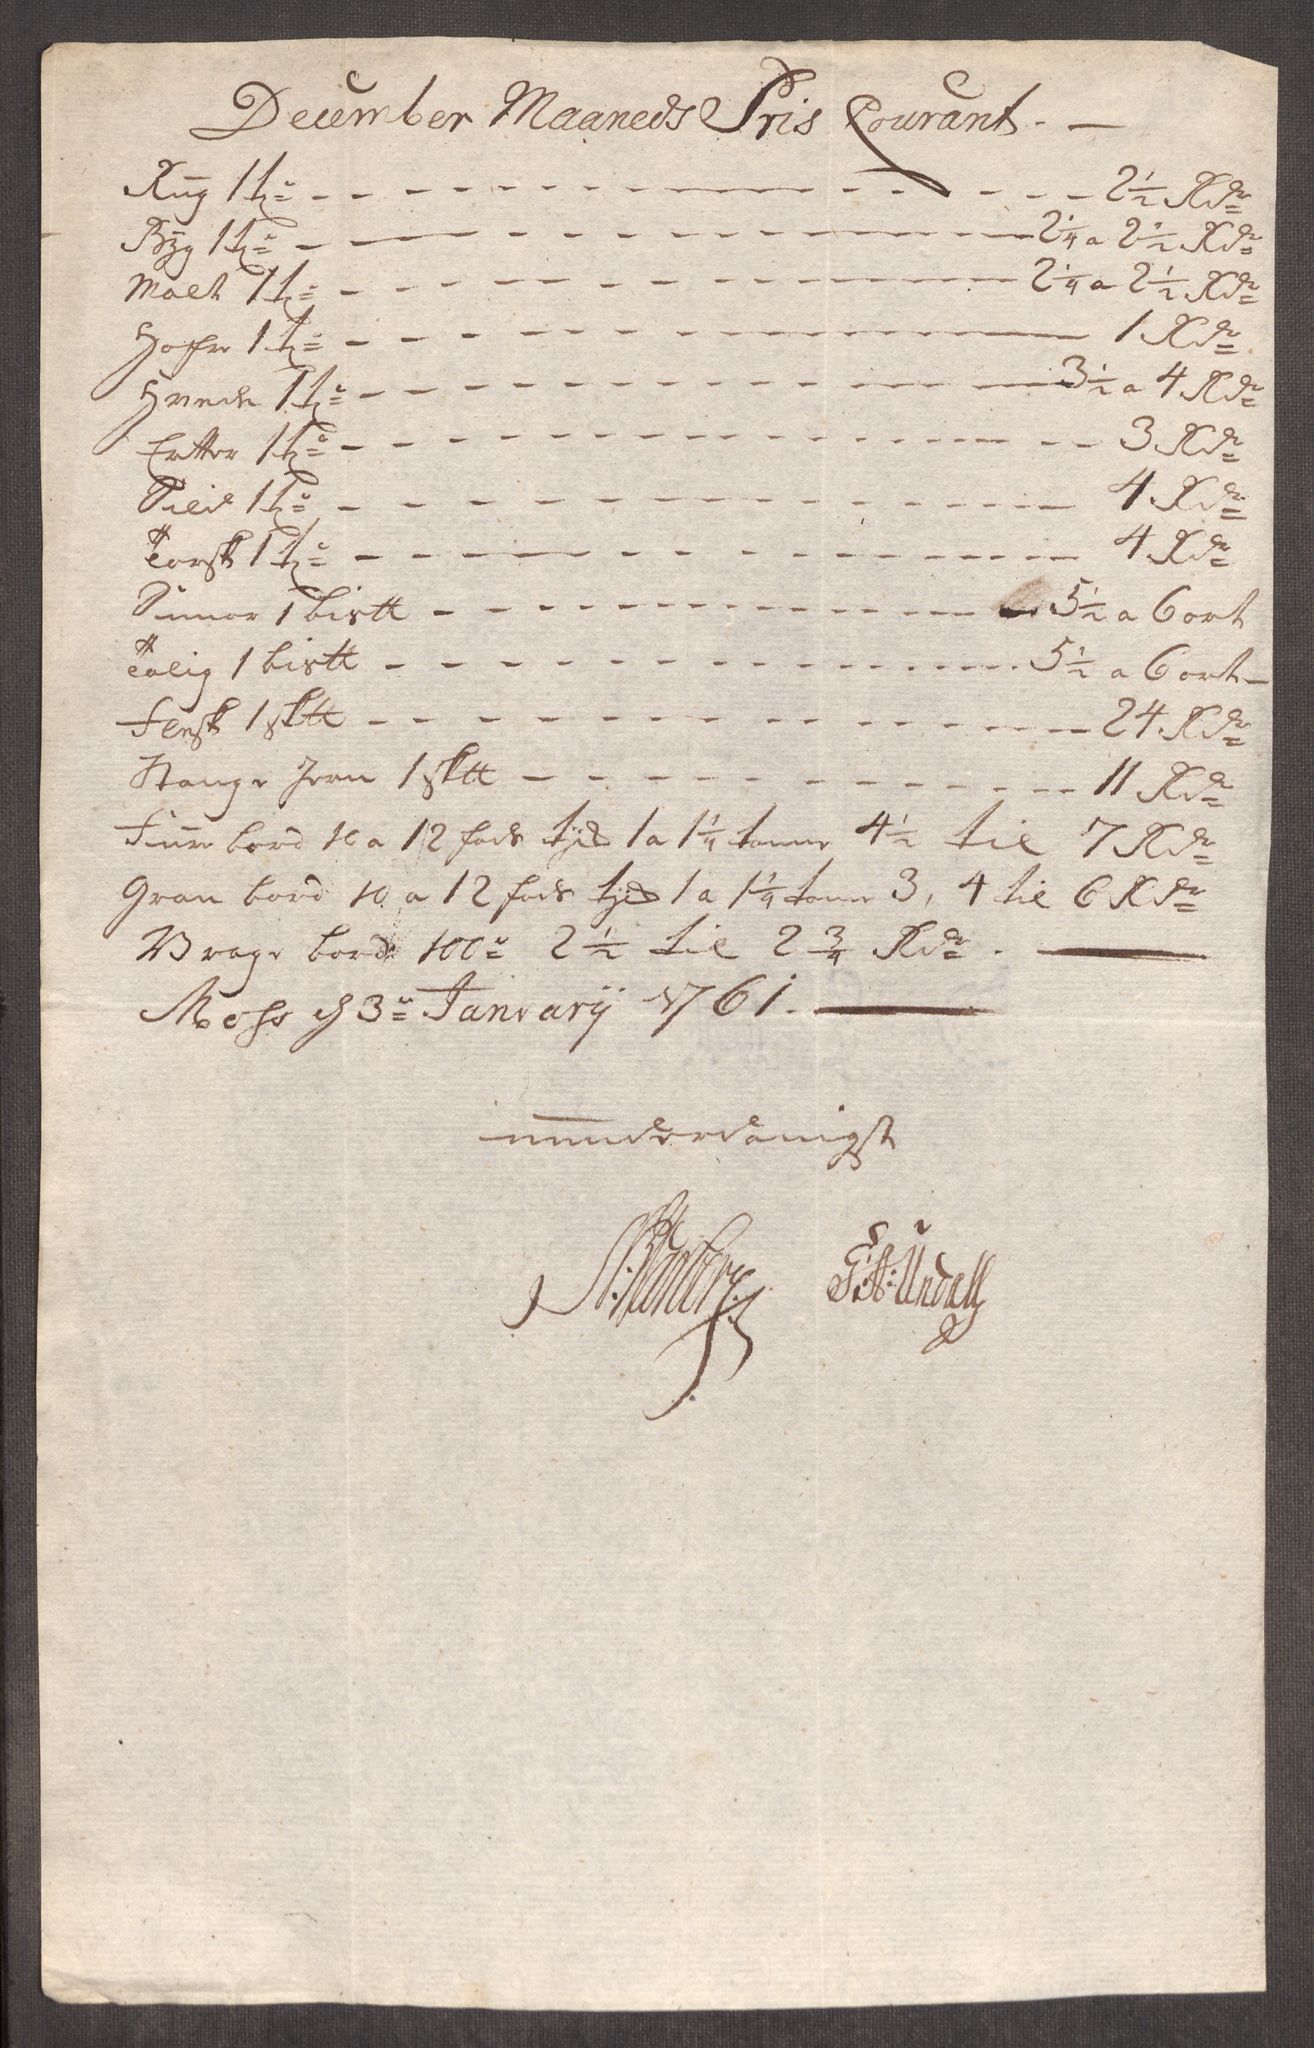 December Maaneds Pris Courant. —
Rug 1 tr — 2 1/2 Rdr
Byg 1 tr — 2 1/4 a 2 1/2 Rdr
Malt 1 tr — 2 1/4 a 2 1/2 Rdr
Hafre 1 tr — 1 Rdr
Hvede 1 tr — 3 1/2 a 4 Rdr
Ertter 1 tr — 3 Rdr
Sild 1 tr — 4 Rdr
Torsk 1 tr — 4 Rdr
Smør 1 bistt — 5 1/2 a 6 ort
Talig 1 bistt — 5 1/2 a 6 ort —
Flesk 1 sktt — 24 Rdr
Stange Jern 1 sktt — 11 Rdr
Furu bord 10 a 12 fods 1 a 1 1/4 tomme 4 1/2 til 7 Rdr
Gran bord 10 a 12 fods 1 a 1 1/4 tomme 3, 4 til 6 Rdr
Vrage bord 100de 2 1/2 til 2 3/4 Rdr. —
Moss d 3de January 1761. —
underdanigst
G: A: Undall